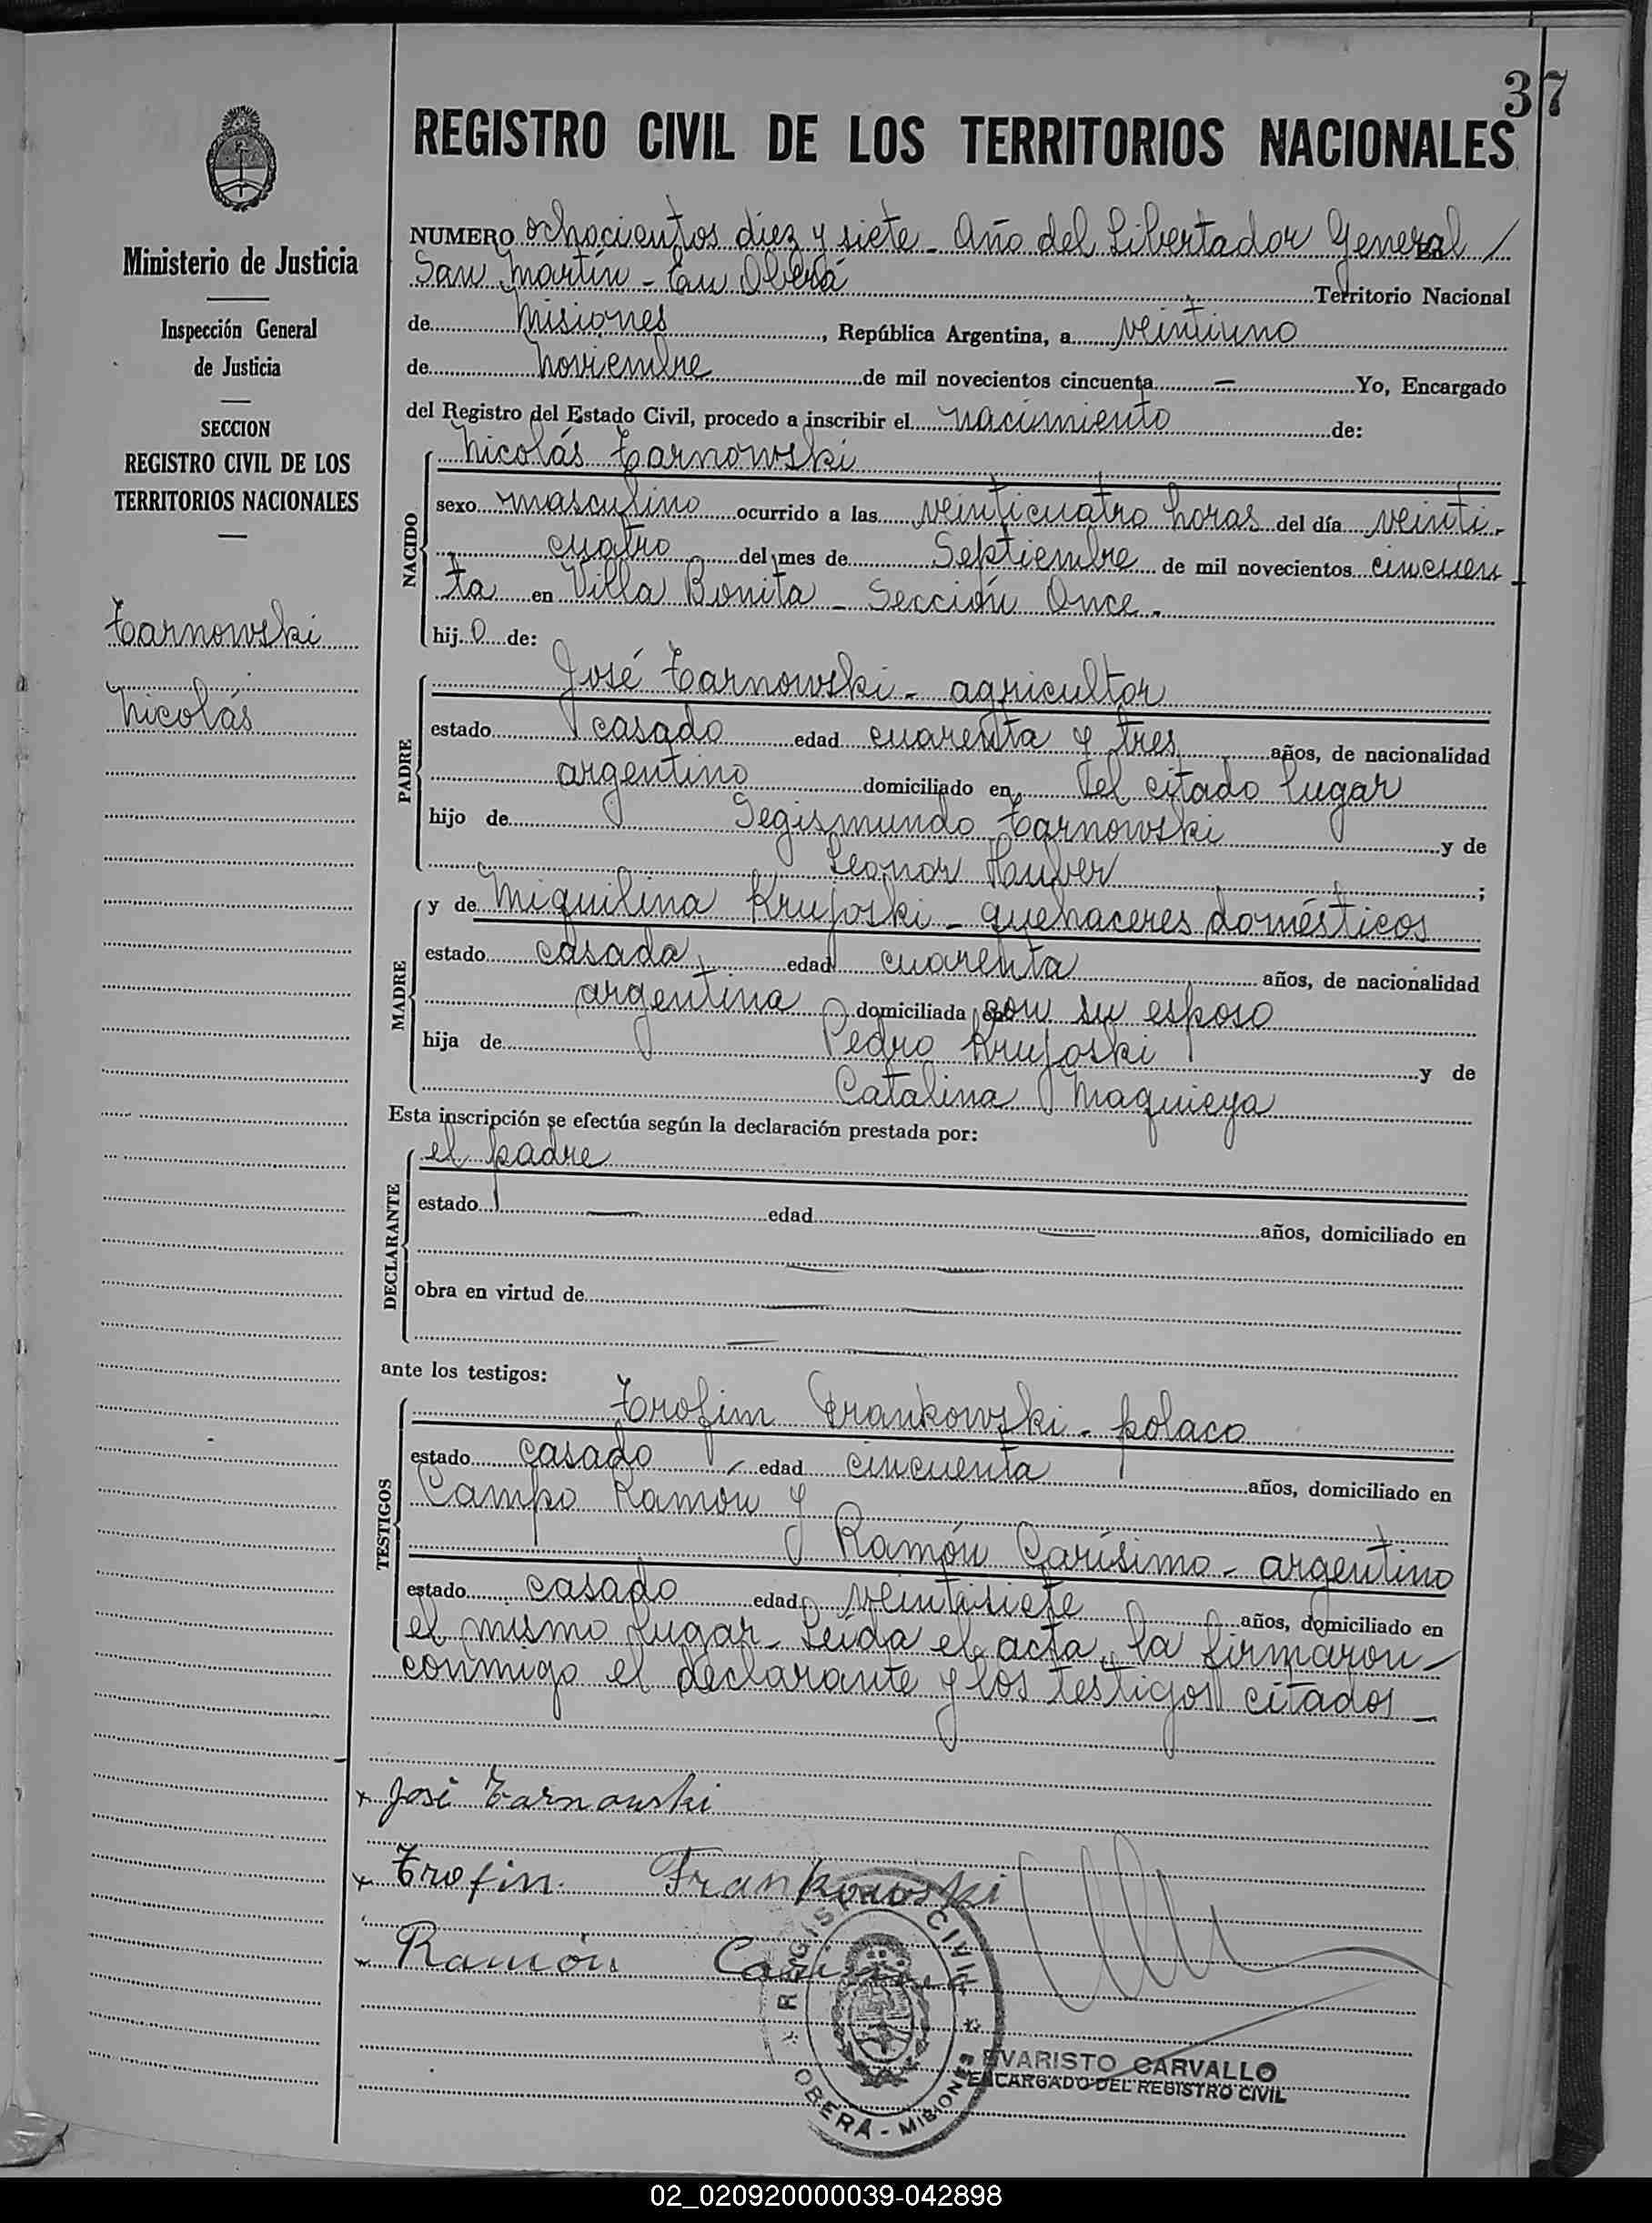 37
REGISTRO CIVIL DE LOS TERRITORIOS NACIONALES
Ministerio de Justicia
Inspección General
de Justicia
SECCION
REGISTRO CIVIL DE LOS
TERRITORIOS NACIONALES
Tarnowski
Nicolás
NUMERO ochocientos diez y siete - Año del Libertador General /
San Martín - En Oberá Territorio Nacional
de Misiones, República Argentina, a veintiuno
de Noviembre de mil novecientos cincuenta — Yo, Encargado
del Registro del Estado Civil, procedo a inscribir el nacimiento de:
NACIDO
Nicolás Tarnowski
sexo masculino ocurrido a las veinticuatro horas del día veinti-
cuatro del mes de Septiembre de mil novecientos cincuen
ta en Villa Bonita - Sección Once.
hij o de:
PADRE
José Tarnowski - agricultor
estado casado edad cuarenta y tres años, de nacionalidad
argentino domiciliado en el citado lugar
hijo de Segismundo Tarnowski y de
Leonor Huber ;
MADRE
y de Miquilina Krujoski - quehaceres domésticos
estado casada edad cuarenta años, de nacionalidad
argentina domiciliada con su esposo
hija de Pedro Krujoski y de
Catalina Maquieya
Esta inscripción se efectúa según la declaración prestada por:
DECLARANTE
el padre
estado — edad — años, domiciliado en
obra en virtud de
ante los testigos:
TESTIGOS
Trofim Frankowski - polaco
estado casado edad cincuenta años, domiciliado en
Campo Ramón y
Ramón Carísimo - argentino
estado casado edad veintisiete años, domiciliado en
el mismo lugar - Leída el acta, la firmaron -
conmigo el declarante y los testigos citados -
x José Tarnowski
x Trofin Frankowski
x Ramón Carisimo
REGISTRO CIVIL
OBERÁ - MISIONES
EVARISTO CARVALLO
ENCARGADO DEL REGISTRO CIVIL
02_020920000039-042898